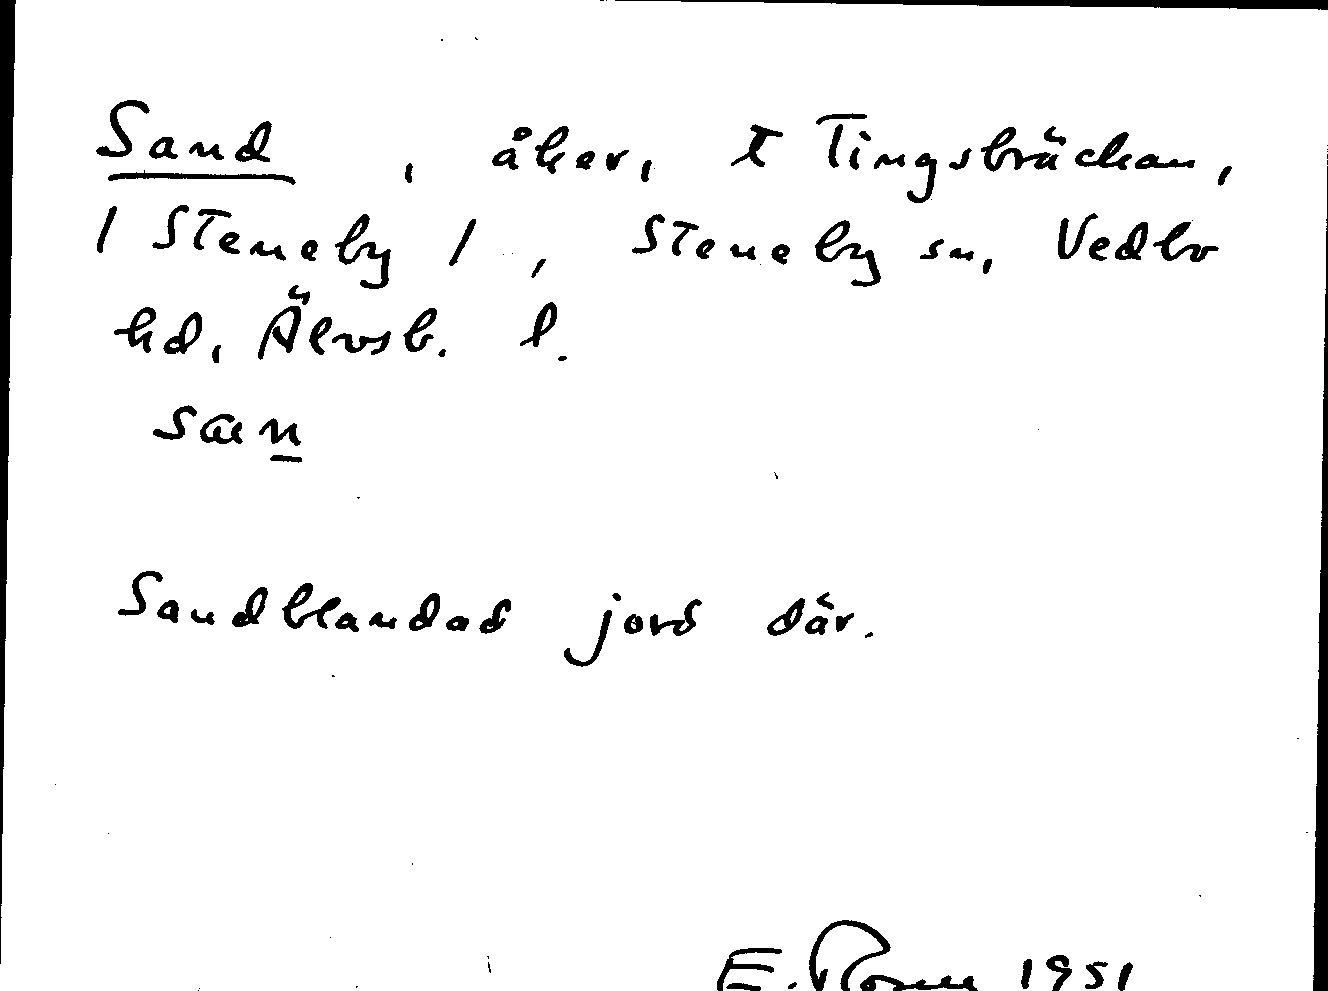 Sand, åker, t Tingsbräckan,
/ Steneby /, Steneby sn, Vedbo
hd, Älvsb. l.
san
Sandblandad jord där.
E. 1951